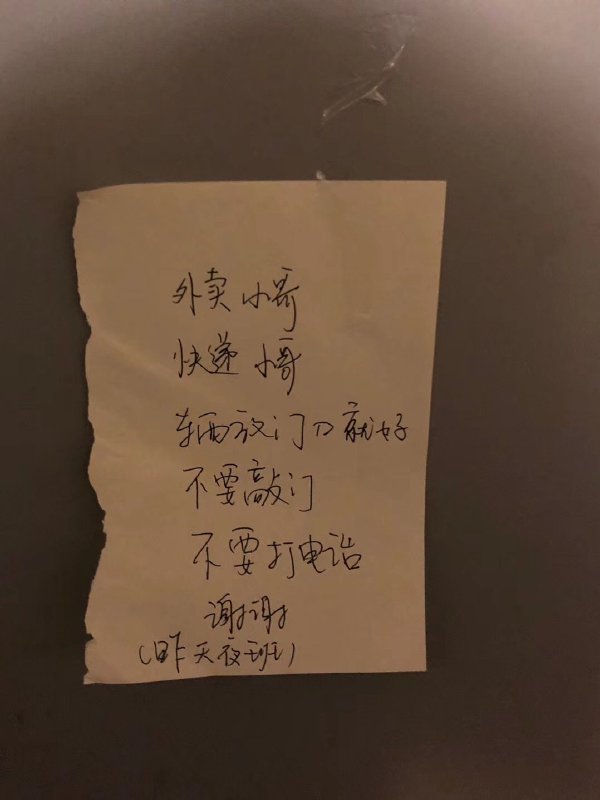 外卖小哥
快递小哥
东西放门口就好
不要敲门
不要打电话
谢谢
（昨天夜班）